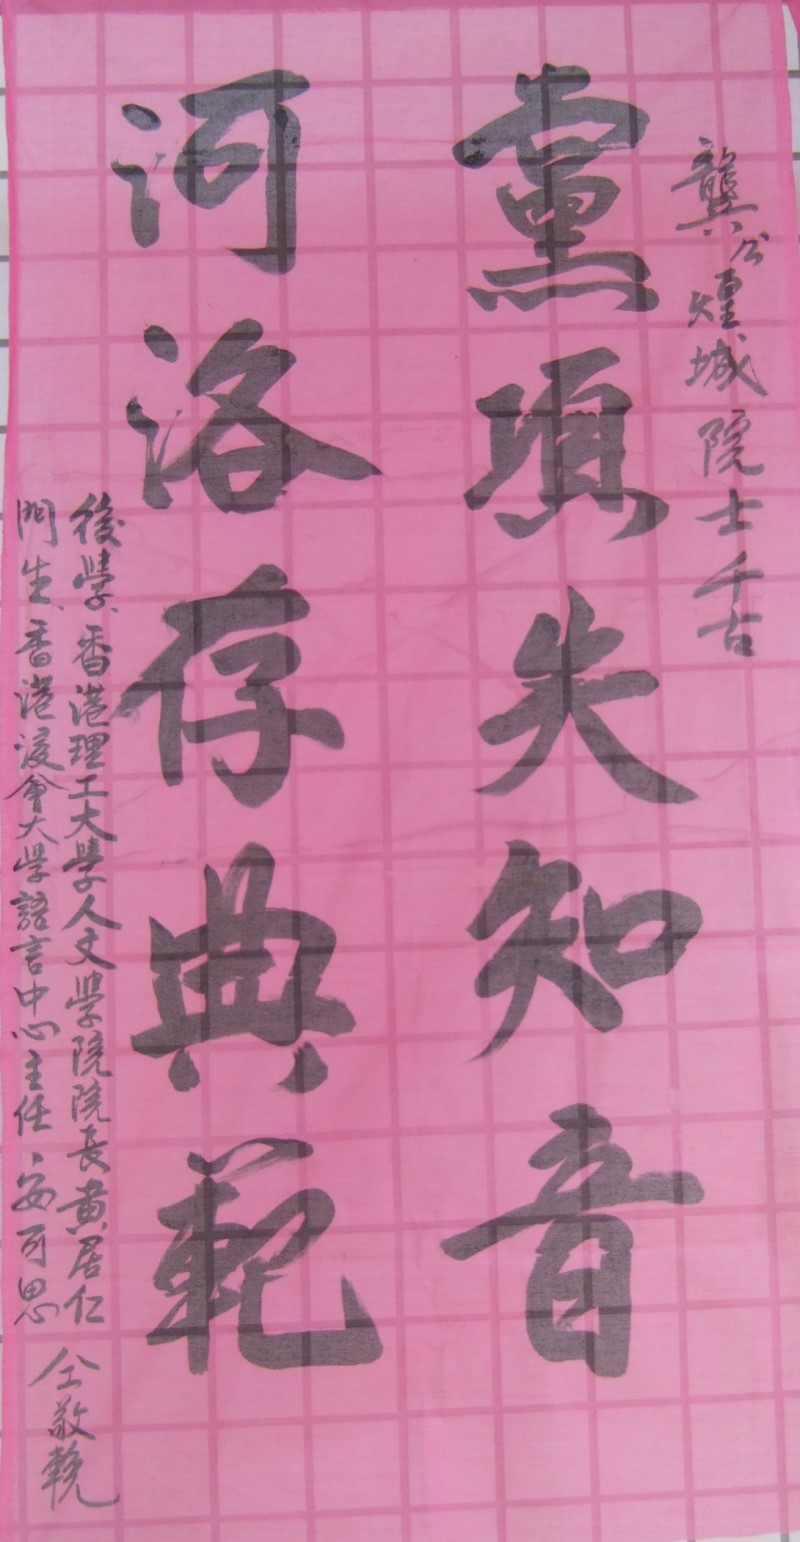 龔公煌城院士千古
黨項失知音
河洛存典範
後學、香港理工大學人文學院院長黃居仁
門生、香港浸會大學語言中心主任、安可思
仝敬輓